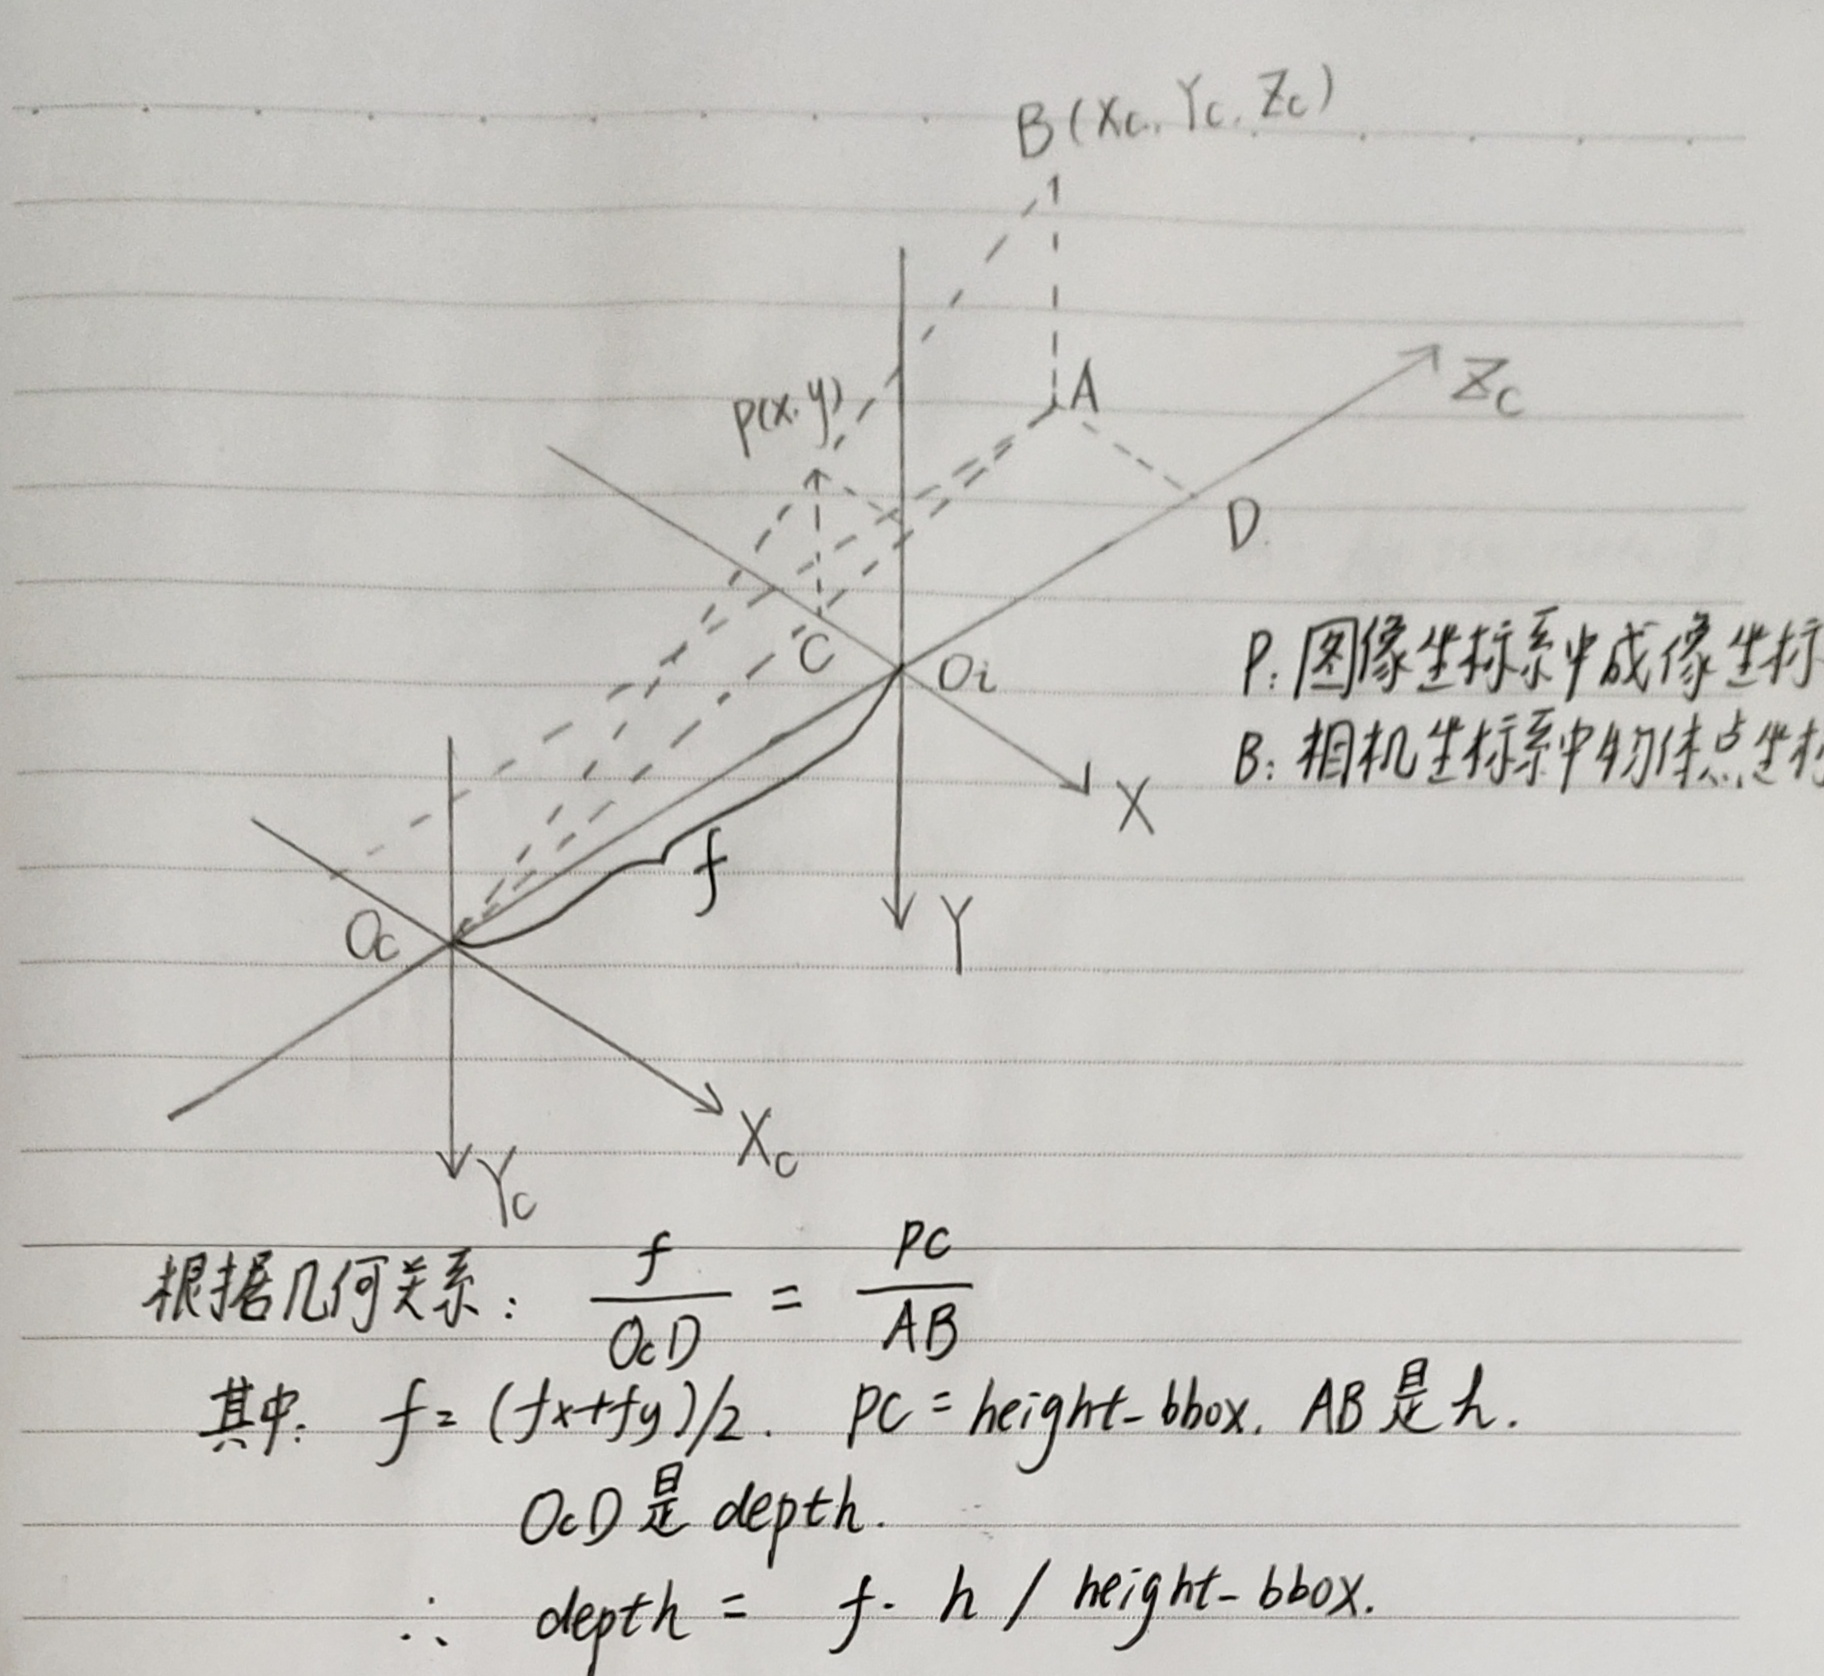 B(Xc, Yc, Zc)
A
Zc
P(x, y)
D
C
Oi
P: 图像坐标系中成像坐标
B: 相机坐标系中物体点坐标
X
f
Oc
Y
Xc
Yc
根据几何关系: f/OcD = PC/AB
其中: f=(fx+fy)/2. PC=height-bbox. AB是h.
OcD是depth.
∴ depth = f· h / height-bbox.